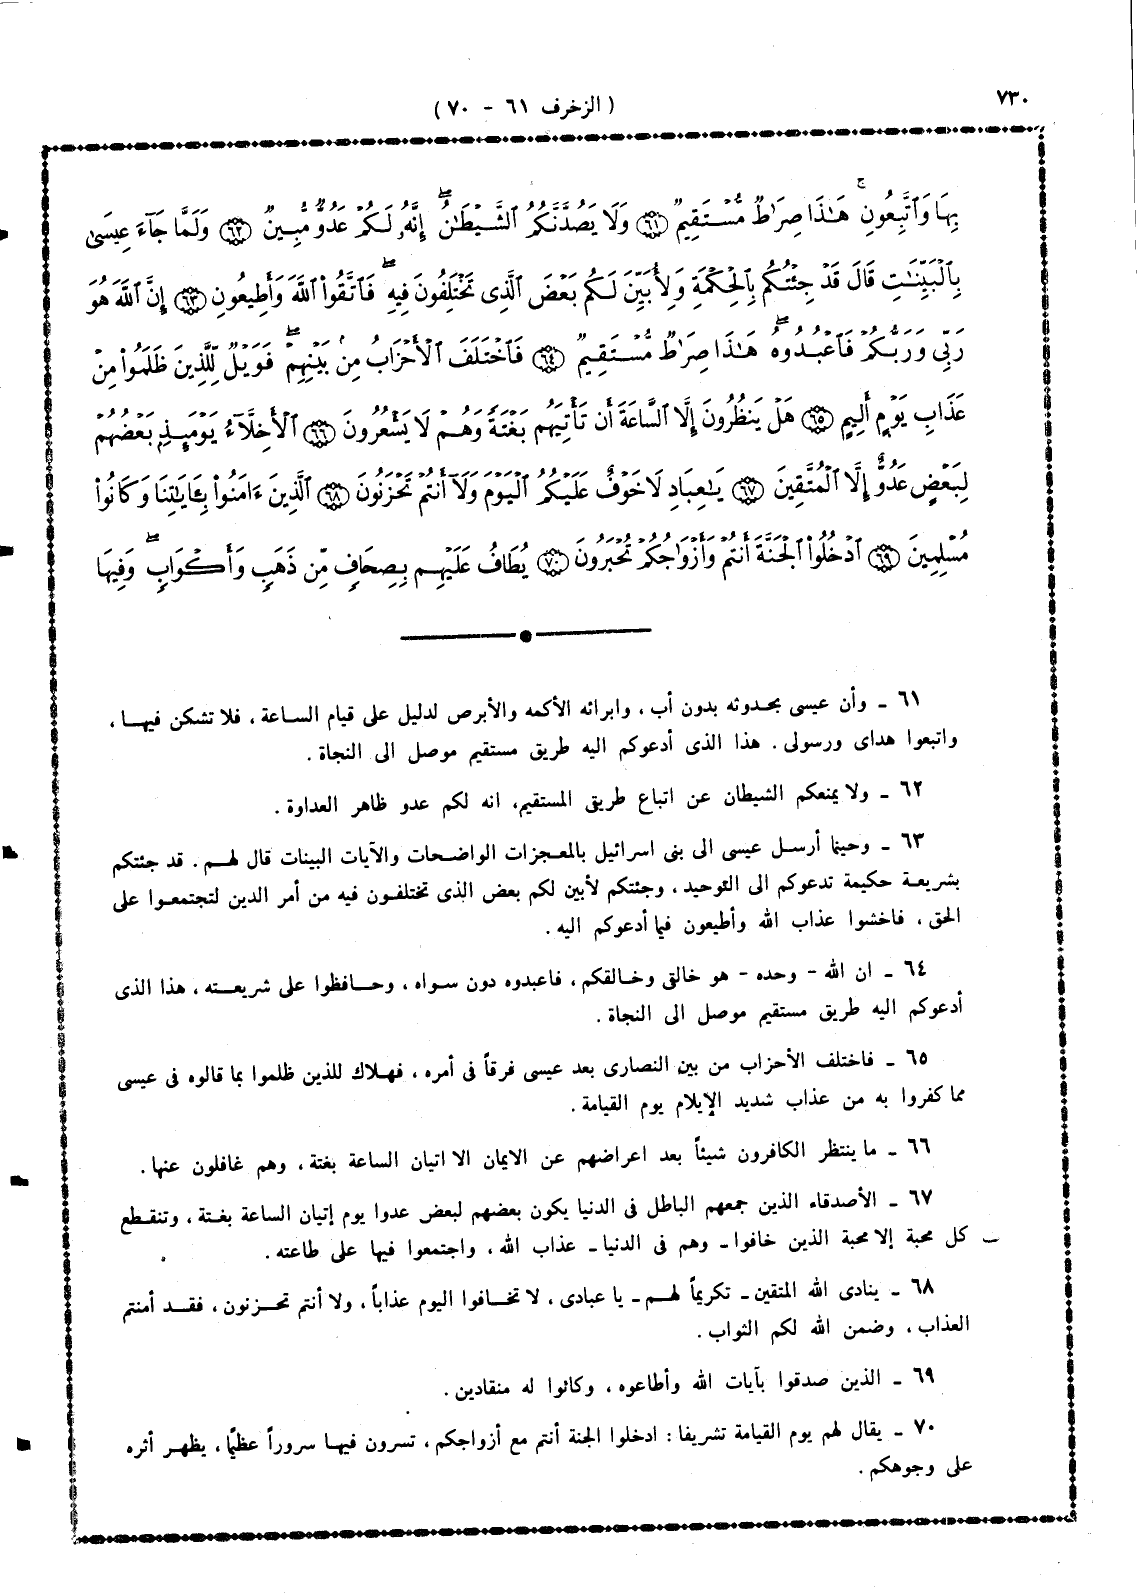 ٧٣٠
( الزخرف ٦١ - ٧٠ )
بِهَا وَٱتَّبِعُونِ ۚ هَٰذَا صِرَٰطٌ مُّسْتَقِيمٌ ٦١ وَلَا يَصُدَّنَّكُمُ ٱلشَّيْطَٰنُ ۖ إِنَّهُۥ لَكُمْ عَدُوٌّ مُّبِينٌ ٦٢ وَلَمَّا جَآءَ عِيسَىٰ
بِٱلْبَيِّنَٰتِ قَالَ قَدْ جِئْتُكُم بِٱلْحِكْمَةِ وَلِأُبَيِّنَ لَكُم بَعْضَ ٱلَّذِى تَخْتَلِفُونَ فِيهِ ۖ فَٱتَّقُوا۟ ٱللَّهَ وَأَطِيعُونِ ٦٣ إِنَّ ٱللَّهَ هُوَ
رَبِّى وَرَبُّكُمْ فَٱعْبُدُوهُ ۚ هَٰذَا صِرَٰطٌ مُّسْتَقِيمٌ ٦٤ فَٱخْتَلَفَ ٱلْأَحْزَابُ مِنۢ بَيْنِهِمْ ۖ فَوَيْلٌ لِّلَّذِينَ ظَلَمُوا۟ مِنْ
عَذَابِ يَوْمٍ أَلِيمٍ ٦٥ هَلْ يَنظُرُونَ إِلَّا ٱلسَّاعَةَ أَن تَأْتِيَهُم بَغْتَةً وَهُمْ لَا يَشْعُرُونَ ٦٦ ٱلْأَخِلَّآءُ يَوْمَئِذٍۭ بَعْضُهُمْ
لِبَعْضٍ عَدُوٌّ إِلَّا ٱلْمُتَّقِينَ ٦٧ يَٰعِبَادِ لَا خَوْفٌ عَلَيْكُمُ ٱلْيَوْمَ وَلَآ أَنتُمْ تَحْزَنُونَ ٦٨ ٱلَّذِينَ ءَامَنُوا۟ بِـَٔايَٰتِنَا وَكَانُوا۟
مُسْلِمِينَ ٦٩ ٱدْخُلُوا۟ ٱلْجَنَّةَ أَنتُمْ وَأَزْوَٰجُكُمْ تُحْبَرُونَ ٧٠ يُطَافُ عَلَيْهِم بِصِحَافٍ مِّن ذَهَبٍ وَأَكْوَابٍ ۖ وَفِيهَا
٦١ ـ وأن عيسى بحدوثه بدون أب ، وابرائه الأكمه والأبرص لدليل على قيام الساعة ، فلا تشكن فيها ،
واتبعوا هداى ورسولى . هذا الذى أدعوكم اليه طريق مستقيم موصل الى النجاة .
٦٢ ـ ولا يمنعكم الشيطان عن اتباع طريق المستقيم، انه لكم عدو ظاهر العداوة .
٦٣ ـ وحينما أرسل عيسى الى بنى اسرائيل بالمعجزات الواضحات والآيات البينات قال لهم . قد جئتكم
بشريعة حكيمة تدعوكم الى التوحيد ، وجئتكم لأبين لكم بعض الذى تختلفون فيه من أمر الدين لتجتمعوا على
الحق ، فاخشوا عذاب الله وأطيعون فيما أدعوكم اليه .
٦٤ ـ ان الله - وحده - هو خالقى وخالقكم ، فاعبدوه دون سواه ، وحافظوا على شريعته ، هذا الذى
أدعوكم اليه طريق مستقيم موصل الى النجاة .
٦٥ ـ فاختلف الأحزاب من بين النصارى بعد عيسى فرقاً فى أمره ، فهلاك للذين ظلموا بما قالوه فى عيسى
مما كفروا به من عذاب شديد الإيلام يوم القيامة .
٦٦ ـ ما ينتظر الكافرون شيئاً بعد اعراضهم عن الايمان الا اتيان الساعة بغتة ، وهم غافلون عنها .
٦٧ ـ الأصدقاء الذين جمعهم الباطل فى الدنيا يكون بعضهم لبعض عدوا يوم إتيان الساعة بغتة ، وتنقطع
كل محبة إلا محبة الذين خافوا ـ وهم فى الدنيا ـ عذاب الله ، واجتمعوا فيها على طاعته .
٦٨ ـ ينادى الله المتقين ـ تكريماً لهم ـ يا عبادى ، لا تخافوا اليوم عذاباً ، ولا أنتم تحزنون ، فقد أمنتم
العذاب ، وضمن الله لكم الثواب .
٦٩ ـ الذين صدقوا بآيات الله وأطاعوه ، وكانوا له منقادين .
٧٠ ـ يقال لهم يوم القيامة تشريفا : ادخلوا الجنة أنتم مع أزواجكم ، تسرون فيها سروراً عظيماً ، يظهر أثره
على وجوهكم .